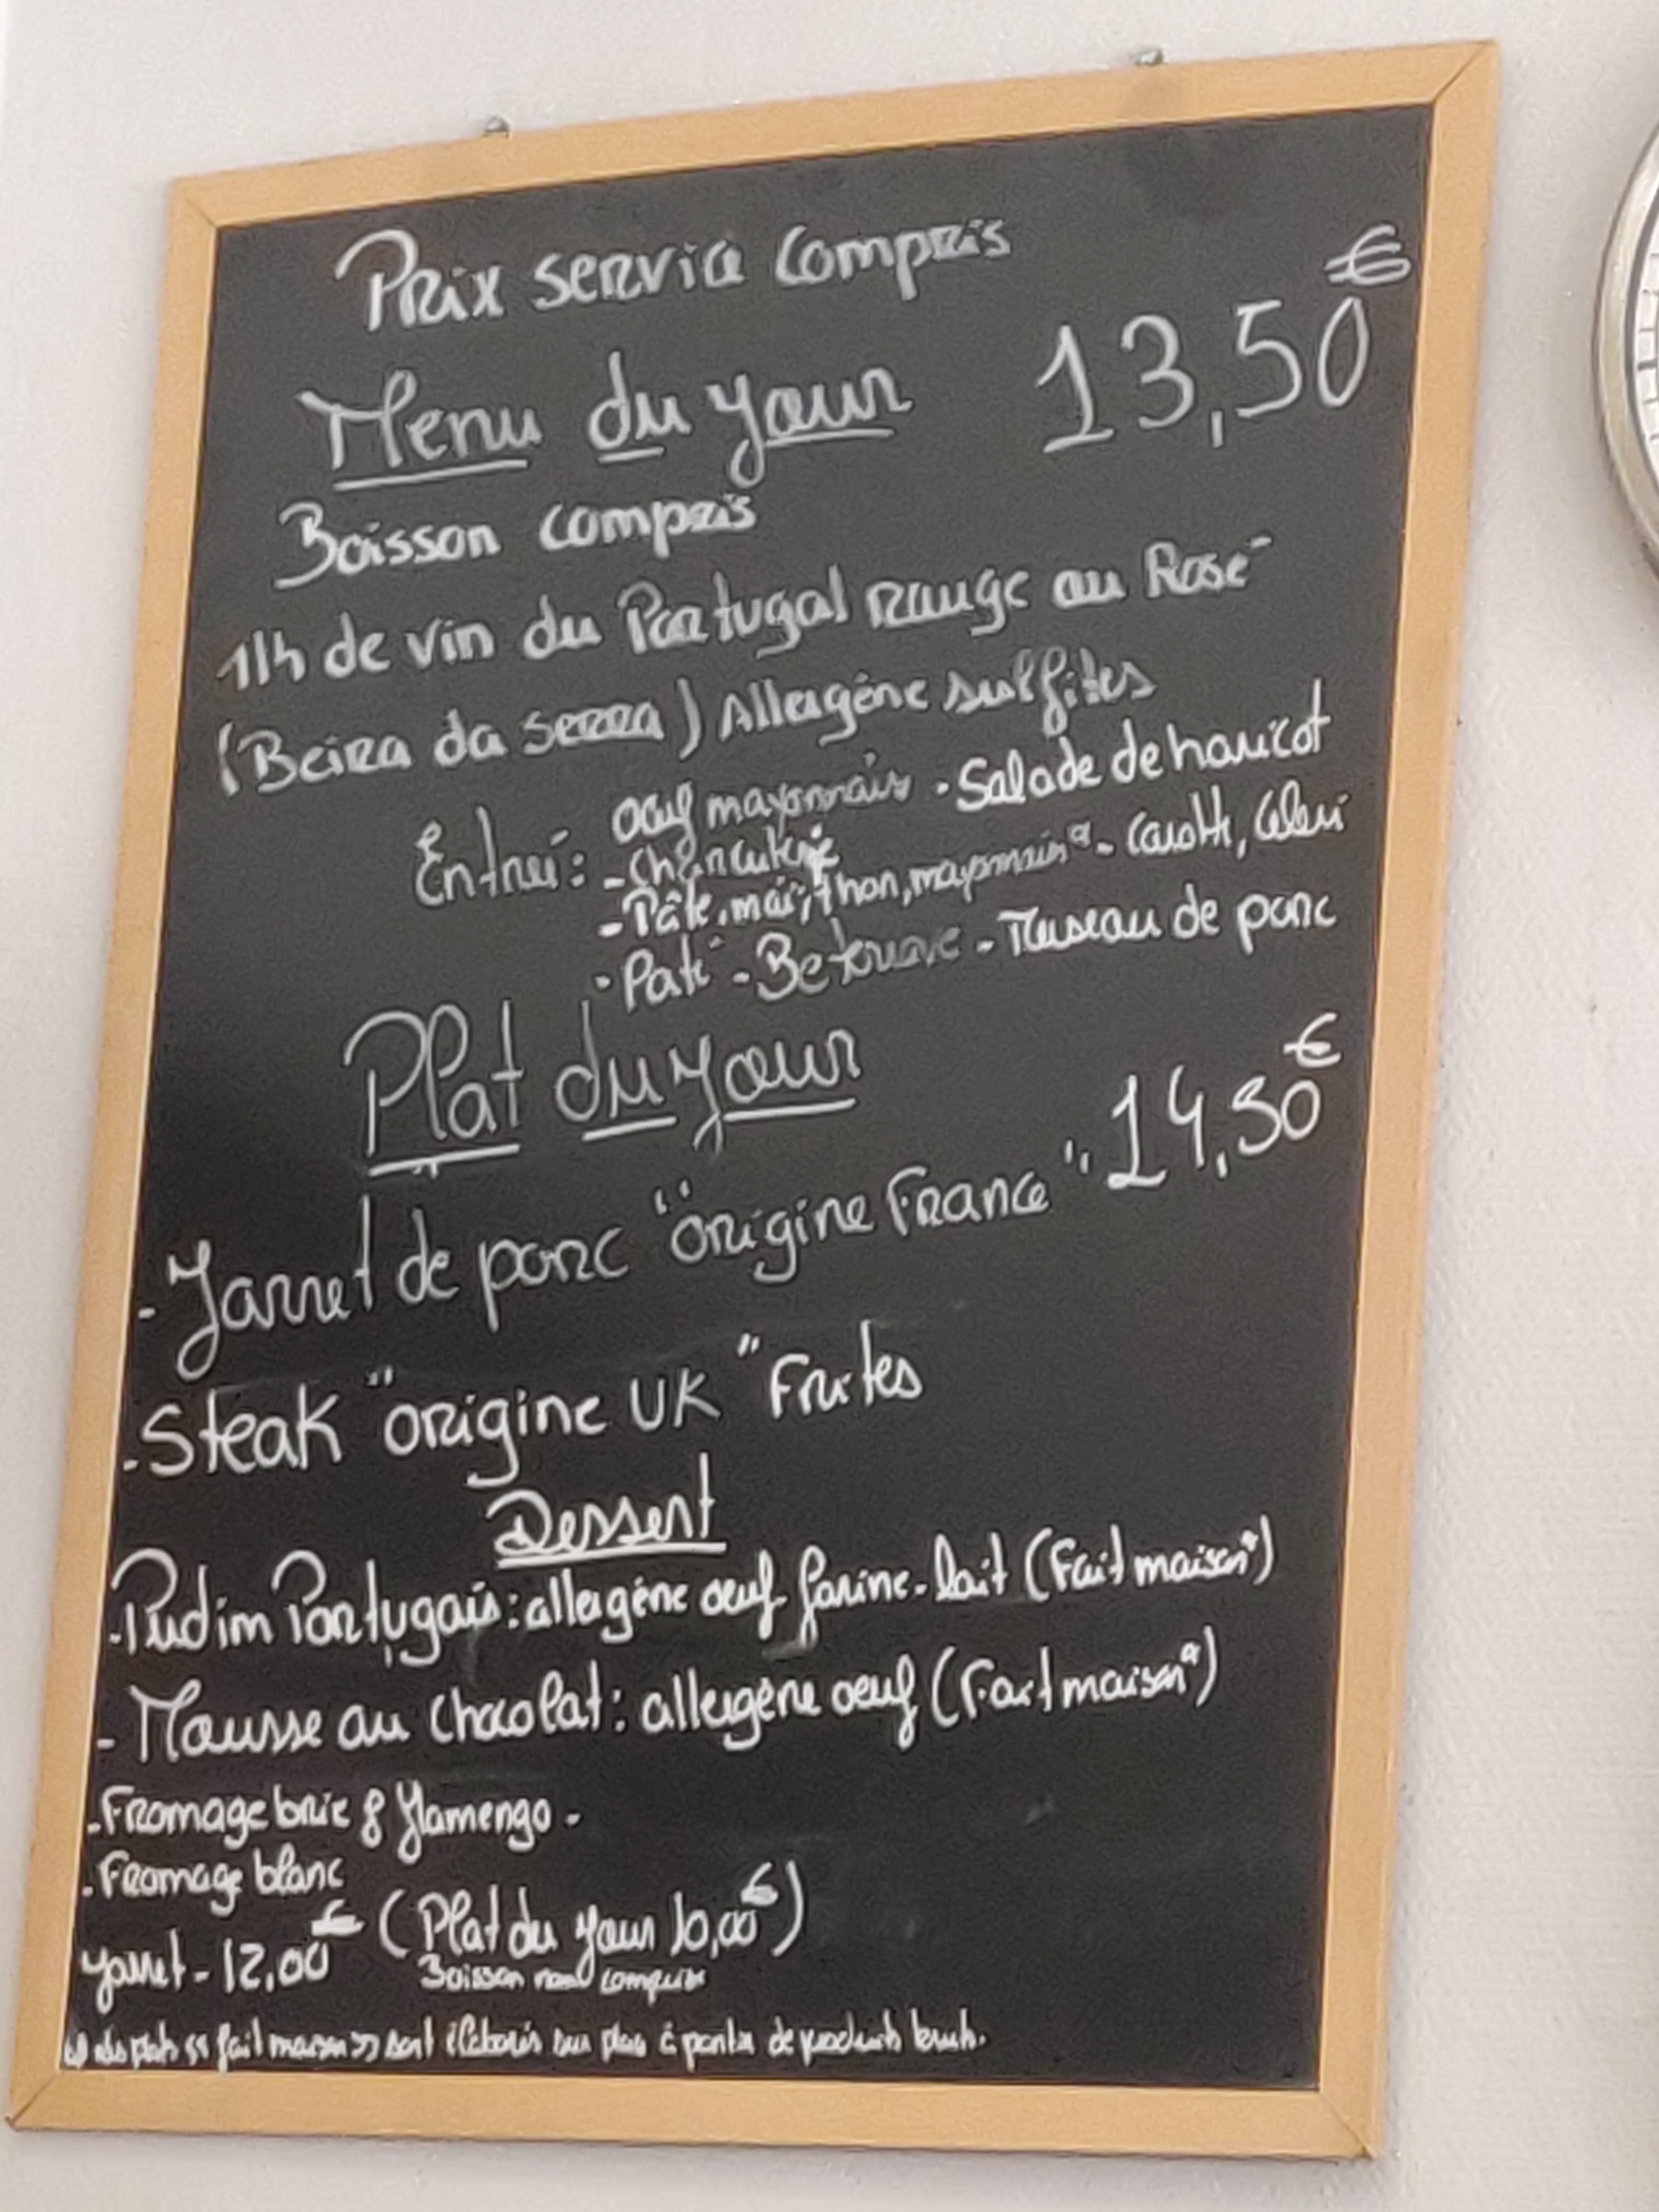 Prix service compris
Menu du jour 13,50€
Boisson compris
1/4 de vin du Portugal rouge ou Rosé
(Beira da serra) Allergène sulfites
Entrée: oeuf mayonnaise - Salade de haricot
- Charcuterie
- Pâte, maïs, thon, mayonnaise - Carotte, Céleri
- Paté - Betterave - Museau de porc
Plat du jour
- Jarret de porc "origine France" 14,50€
- Steak "origine UK" Frites
Dessert
- Pudim Portugais: allergène oeuf farine - lait (Fait maison*)
- Mousse au chocolat: allergène oeuf (Fait maison*)
- Fromage brie & flamengo -
- Fromage blanc
Jarret - 12,00€ (Plat du jour 10,00€)
Boisson non comprise
plats << fait maison >> sont élaborés sur place à partir de produits bruts.